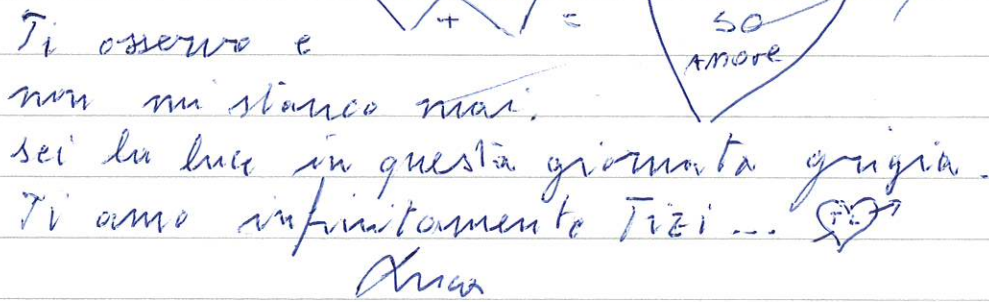 + =
SO
AMORE
Ti osservo e
non mi stanco mai.
sei la luce in questa giornata grigia.
Ti amo infinitamente Tizi... TL
Luca